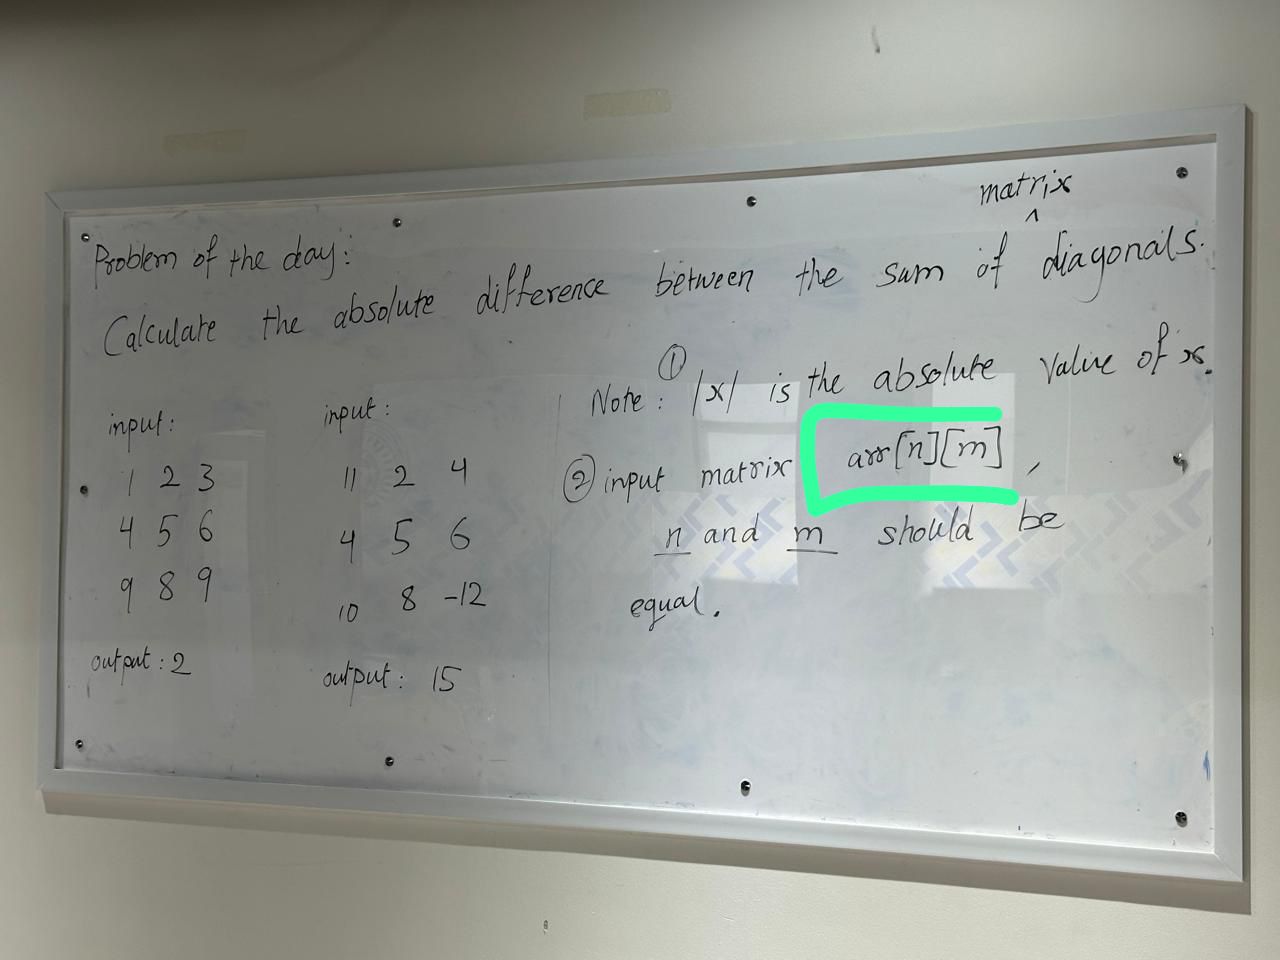 Problem of the day:
Calculate the absolute difference between the sum of matrix diagonals.
input:
1 2 3
4 5 6
9 8 9
output: 2
input:
11 2 4
4 5 6
10 8 -12
output: 15
Note: ① |x| is the absolute value of x.
② input matrix arr[n][m],
n and m should be
equal.